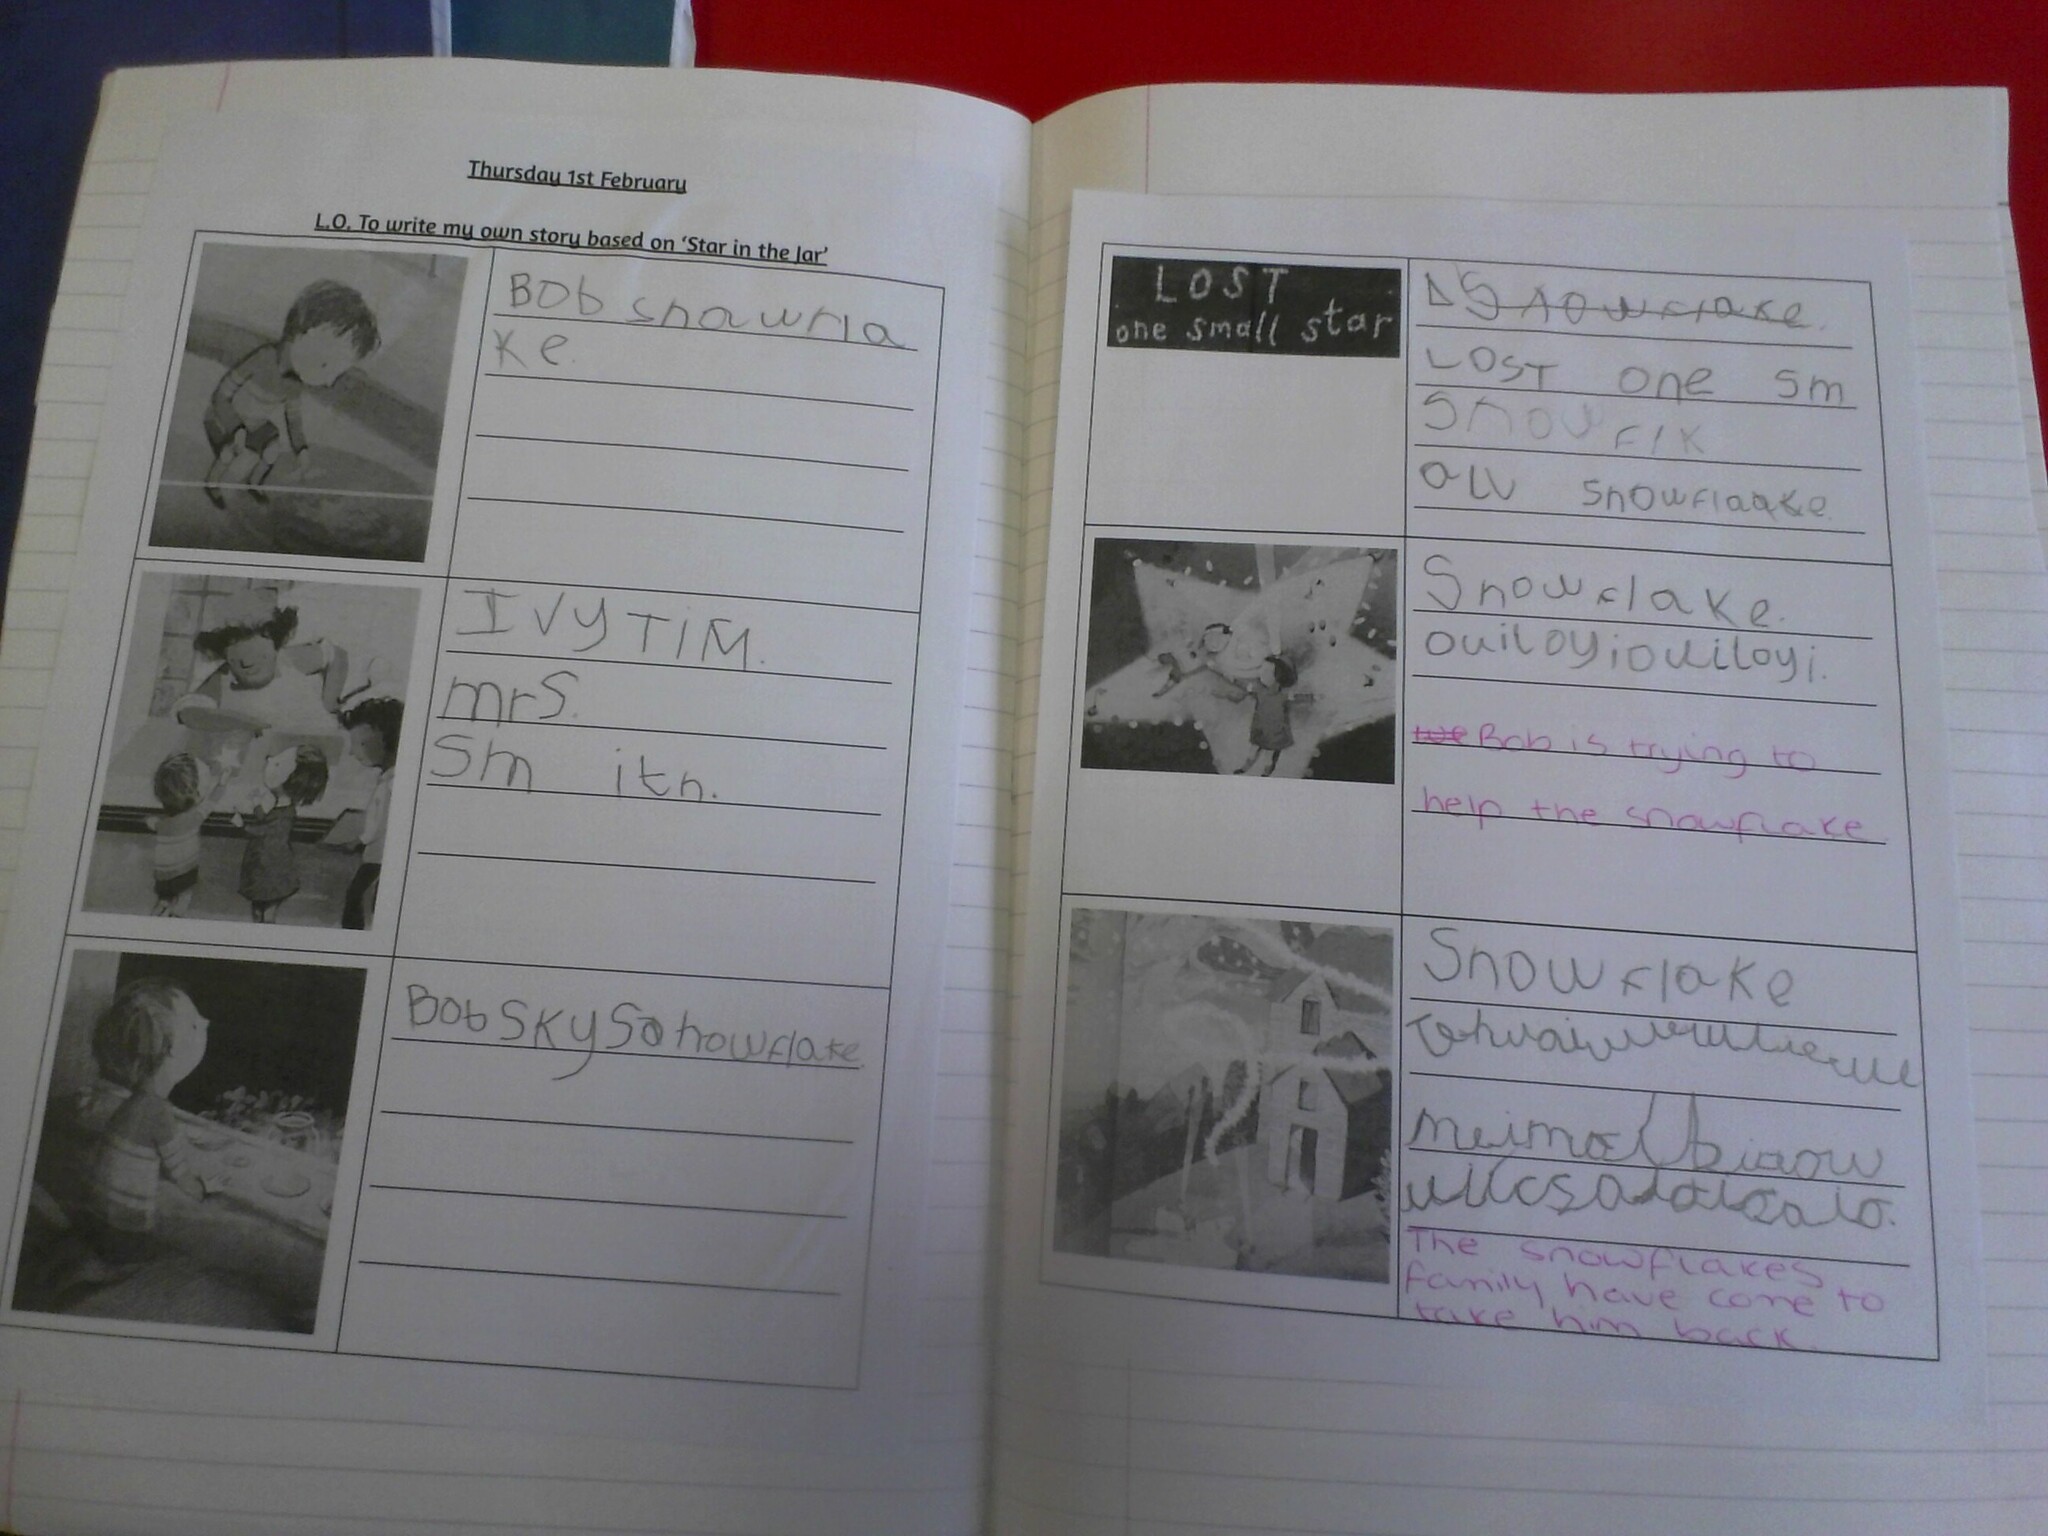 Thursday 1st February
L.O. To write my own story based on 'Star in the Jar'
Bob snowfla
ke.
IVY TiM.
mrs.
Sm itn.
Bob SKY Snowflake.
LOST
one small star
Snowflake.
LOST one sm
Snow flk
all snowflaake.
Snowflake.
ouiloyiouiloyi.
Bob is trying to
help the snowflake.
Snowflake
The snowflakes
family have come to
take him back.